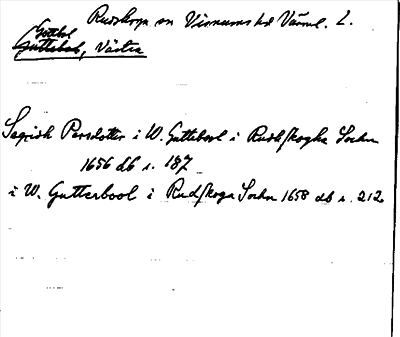 Rudskoga sn Visnums hd Värml. L.
Gottbol
Guttebol, Västra
Segridh Persdotter i W. Guttebool i Rudhskogha Sochn
1656 db s. 187
i W. Gutterbool i Rudskoga Sochn 1658 db s. 212